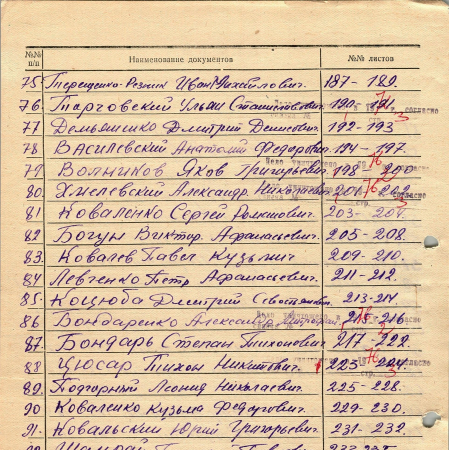 №№ п/п Наименование документов №№ листов
75 Терещенко-Резник Иван Михайлович. 187 - 189.
76. Тарговский Ульян Станиславович 190 - 191
77 Демьяненко Дмитрий Денисович. 192 - 193
78 Василевский Анатолий Федорович. 194 - 197.
79 Волников Яков Григорьевич 198 - 200
80 Хмелевский Александр. Николаевич 201 - 202
81 Коваленко Сергей Романович. 203 - 204.
82 Богун Виктор Афанасьевич. 205 - 208.
83. Ковалев Павел Кузьмич 209 - 210.
84 Левченко Петр Афанасьевич. 211 - 212.
85. Коцюба Дмитрий Севостьянович. 213 - 214.
86 Бондаренко Александр 215 - 216
87. Бондарь Степан Тихонович. 217 - 222.
88 Цюсар Тихон Никитович. 223 - 224.
89. Подгорный Леонид Николаевич. 225 - 228.
90 Коваленко Кузьма Федорович. 229 - 230.
91. Ковальский Юрий Григорьевич. 231 - 232.